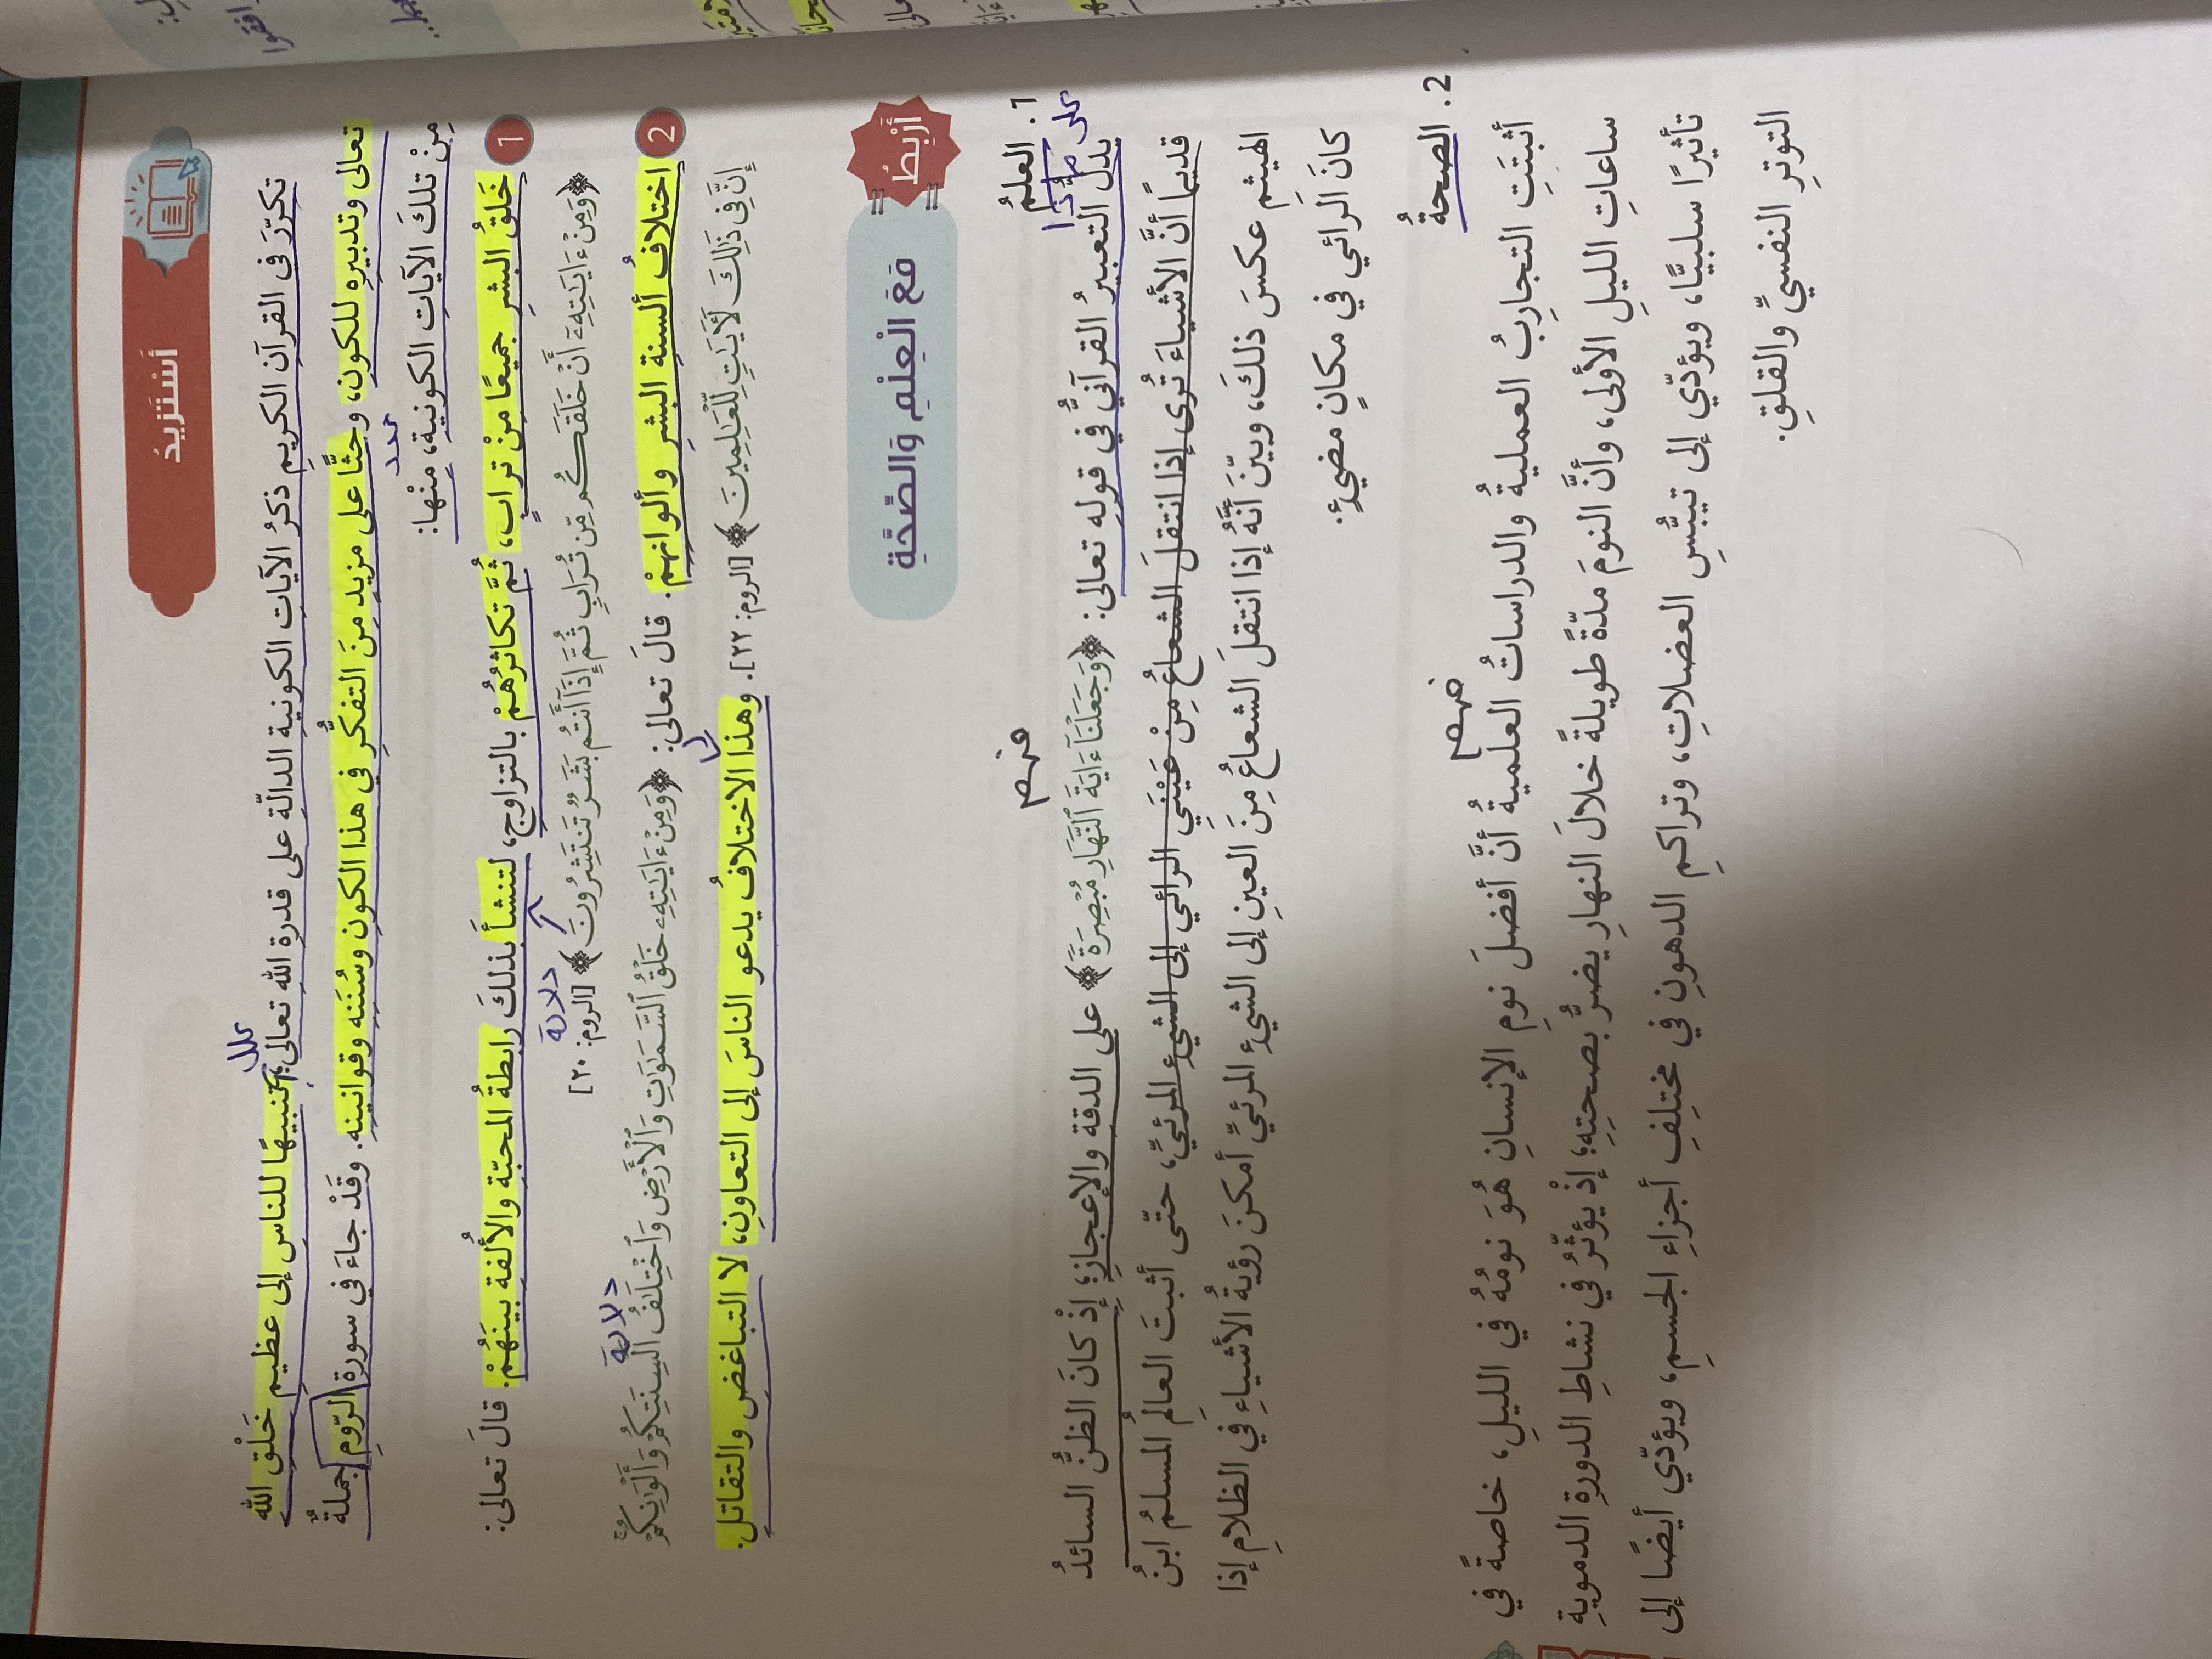 أَسْتَزيدُ
تكرّرَ في القرآن الكريمِ ذكرُ الآيات الكونية الدالّة على قدرة الله تعالى؛ تنبيهًا للناس إلى عظيم خَلْق الله
علل
تعالى وتدبيره للكون، وحثًّا على مزيد منَ التفكّر في هذا الكون وسُننه وقوانينه. وقَدْ جاءَ في سورة الرّوم جملةٌ
مِنْ تلكَ الآيات الكونية، منْها:
عدد
1 خَلقُ البشرِ جميعًا منْ ترابٍ، ثُمَّ تكاثرُهُمْ بالتزاوجِ، لتنشأَ بذلكَ رابطةُ المحبّة والأُلفة بينَهُمْ. قالَ تعالى:
﴿وَمِنْ ءَايَٰتِهِۦٓ أَنْ خَلَقَكُم مِّن تُرَابٍ ثُمَّ إِذَآ أَنتُم بَشَرٌ تَنتَشِرُونَ﴾ [الروم: ٢٠]
دلالة
2 اختلافُ ألسنة البشرِ وألوانهِمْ. قالَ تعالى: ﴿وَمِنْ ءَايَٰتِهِۦ خَلْقُ ٱلسَّمَٰوَٰتِ وَٱلْأَرْضِ وَٱخْتِلَٰفُ أَلْسِنَتِكُمْ وَأَلْوَٰنِكُمْ ۚ
دلالة
إِنَّ فِى ذَٰلِكَ لَأٓيَٰتٍ لِّلْعَٰلِمِينَ﴾ [الروم: ٢٢]. وهذا الاختلافُ يدعو الناسَ إلى التعاونِ، لا التباغضِ والتقاتلِ.
أَرْبِطُ
مَعَ الْعِلْمِ وَالصِّحَّةِ
1. العلمُ
فهم
على مَ
يدلّ التعبيرُ القرآنيُّ في قولِه تعالى: ﴿وَجَعَلْنَآ ءَايَةَ ٱلنَّهَارِ مُبْصِرَةً﴾ على الدقة والإعجازِ؛ إذْ كانَ الظنُّ السائدُ
قديمًا أنَّ الأشياءَ تُرى إذا انتقلَ الشعاعُ مِنْ عَيْنَيِ الرائي إلى الشيءِ المرئيِّ، حتّى أثبتَ العالمُ المسلمُ ابنُ
الهيثمِ عكسَ ذلكَ، وبيّنَ أنَّهُ إذا انتقلَ الشعاعُ مِنَ العينِ إلى الشيءِ المرئيِّ أمكنَ رؤيةُ الأشياءِ في الظلامِ إذا
كانَ الرائي في مكانٍ مضيءٍ.
2. الصحةُ
فهم
أثبتَتِ التجاربُ العمليةُ والدراساتُ العلميةُ أنَّ أفضلَ نومِ الإنسانِ هُوَ نومُهُ في الليلِ، خاصةً في
ساعاتِ الليلِ الأولى، وأنَّ النومَ مدّةً طويلةً خلالَ النهارِ يضرُّ بصحتِهِ؛ إذْ يؤثّرُ في نشاطِ الدورةِ الدمويةِ
تأثيرًا سلبيًّا، ويؤدّي إلى تيبُّسِ العضلاتِ، وتراكمِ الدهونِ في مختلِفِ أجزاءِ الجسمِ، ويؤدّي أيضًا إلى
التوترِ النفسيِّ والقلقِ.